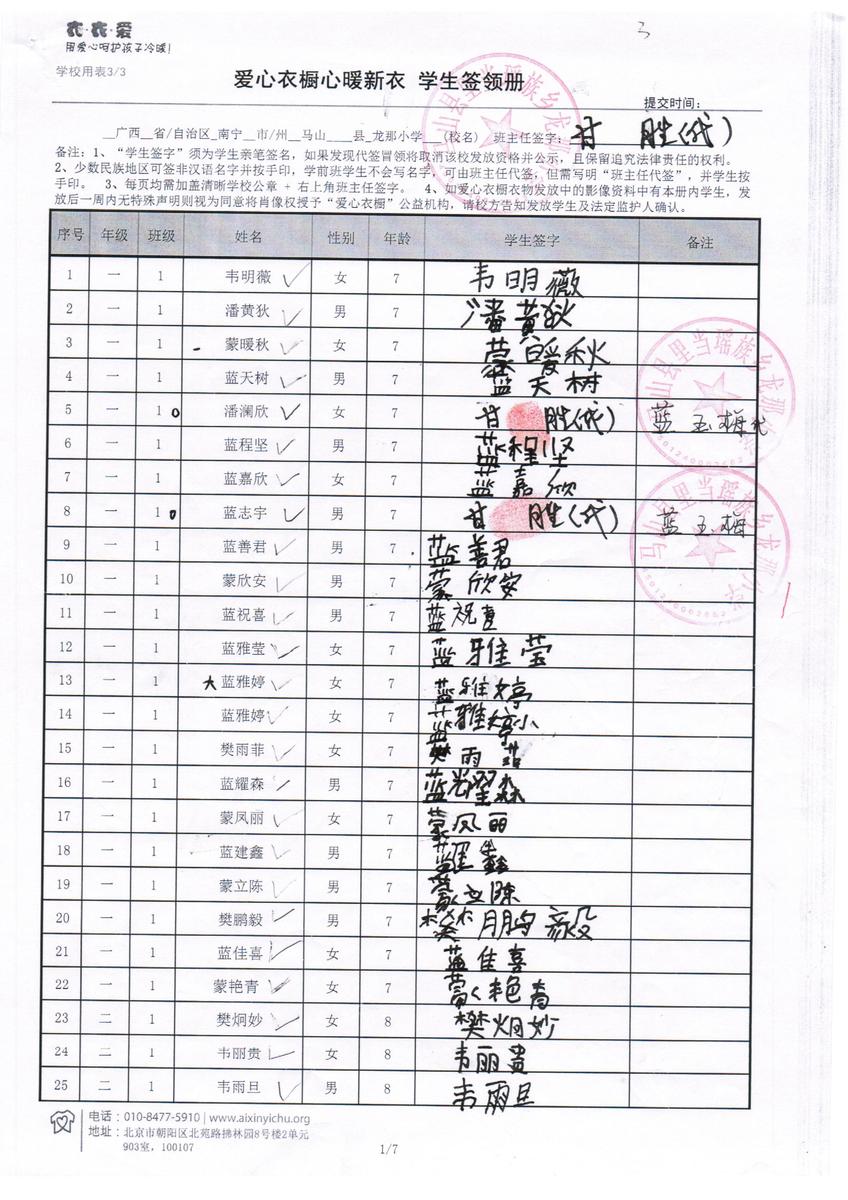 衣·衣·爱
用爱心呵护孩子冷暖!
3
学校用表3/3
爱心衣橱心暖新衣 学生签领册
提交时间:
__广西__省/自治区_南宁__市/州__马山____县_龙那小学___(校名) 班主任签字: 甘 胜(代)
备注:1、“学生签字”须为学生亲笔签名,如果发现代签冒领将取消该校发放资格并公示,且保留追究法律责任的权利。
2、少数民族地区可签非汉语名字并按手印,学前班学生不会写名字,可由班主任代签,但需写明“班主任代签”,并学生按
手印。 3、每页均需加盖清晰学校公章 + 右上角班主任签字。 4、如爱心衣橱衣物发放中的影像资料中有本册内学生,发
放后一周内无特殊声明则视为同意将肖像权授予“爱心衣橱”公益机构,请校方告知发放学生及法定监护人确认。
序号 年级 班级 姓名 性别 年龄 学生签字 备注
1 一 1 韦明薇 ✓ 女 7 韦明薇
2 一 1 潘黄狄 ✓ 男 7 潘黄狄
3 一 1 蒙暖秋 ✓ 女 7 蒙暖秋
4 一 1 蓝天树 ✓ 男 7 蓝天树
5 一 1 潘澜欣 ✓ 女 7 甘 胜(代) 蓝玉梅代
6 一 1 蓝程坚 ✓ 男 7 蓝程坚
7 一 1 蓝嘉欣 ✓ 女 7 蓝嘉欣
8 一 1 蓝志宇 ✓ 男 7 甘 胜(代) 蓝玉梅
9 一 1 蓝善君 ✓ 男 7 蓝善君
10 一 1 蒙欣安 ✓ 男 7 蒙欣安
11 一 1 蓝祝喜 ✓ 男 7 蓝祝喜
12 一 1 蓝雅莹 ✓ 女 7 蓝雅莹
13 一 1 大 蓝雅婷 ✓ 女 7 蓝雅婷
14 一 1 蓝雅婷 ✓ 女 7 蓝雅婷小
15 一 1 樊雨菲 ✓ 女 7 樊雨菲
16 一 1 蓝耀森 ✓ 男 7 蓝耀森
17 一 1 蒙凤丽 ✓ 女 7 蒙凤丽
18 一 1 蓝建鑫 ✓ 男 7 蓝建鑫
19 一 1 蒙立陈 ✓ 男 7 蒙立陈
20 一 1 樊鹏毅 ✓ 男 7 樊鹏毅
21 一 1 蓝佳喜 ✓ 女 7 蓝佳喜
22 一 1 蒙艳青 ✓ 女 7 蒙艳青
23 二 1 樊炯妙 ✓ 女 8 樊炯妙
24 二 1 韦丽贵 ✓ 女 8 韦丽贵
25 二 1 韦雨旦 ✓ 男 8 韦雨旦
马山县里当瑶族乡龙那小学
马山县里当瑶族乡龙那小学
马山县里当瑶族乡龙那小学
电话:010-8477-5910 | www.aixinyichu.org
地址:北京市朝阳区北苑路拂林园8号楼2单元
903室,100107
1/7